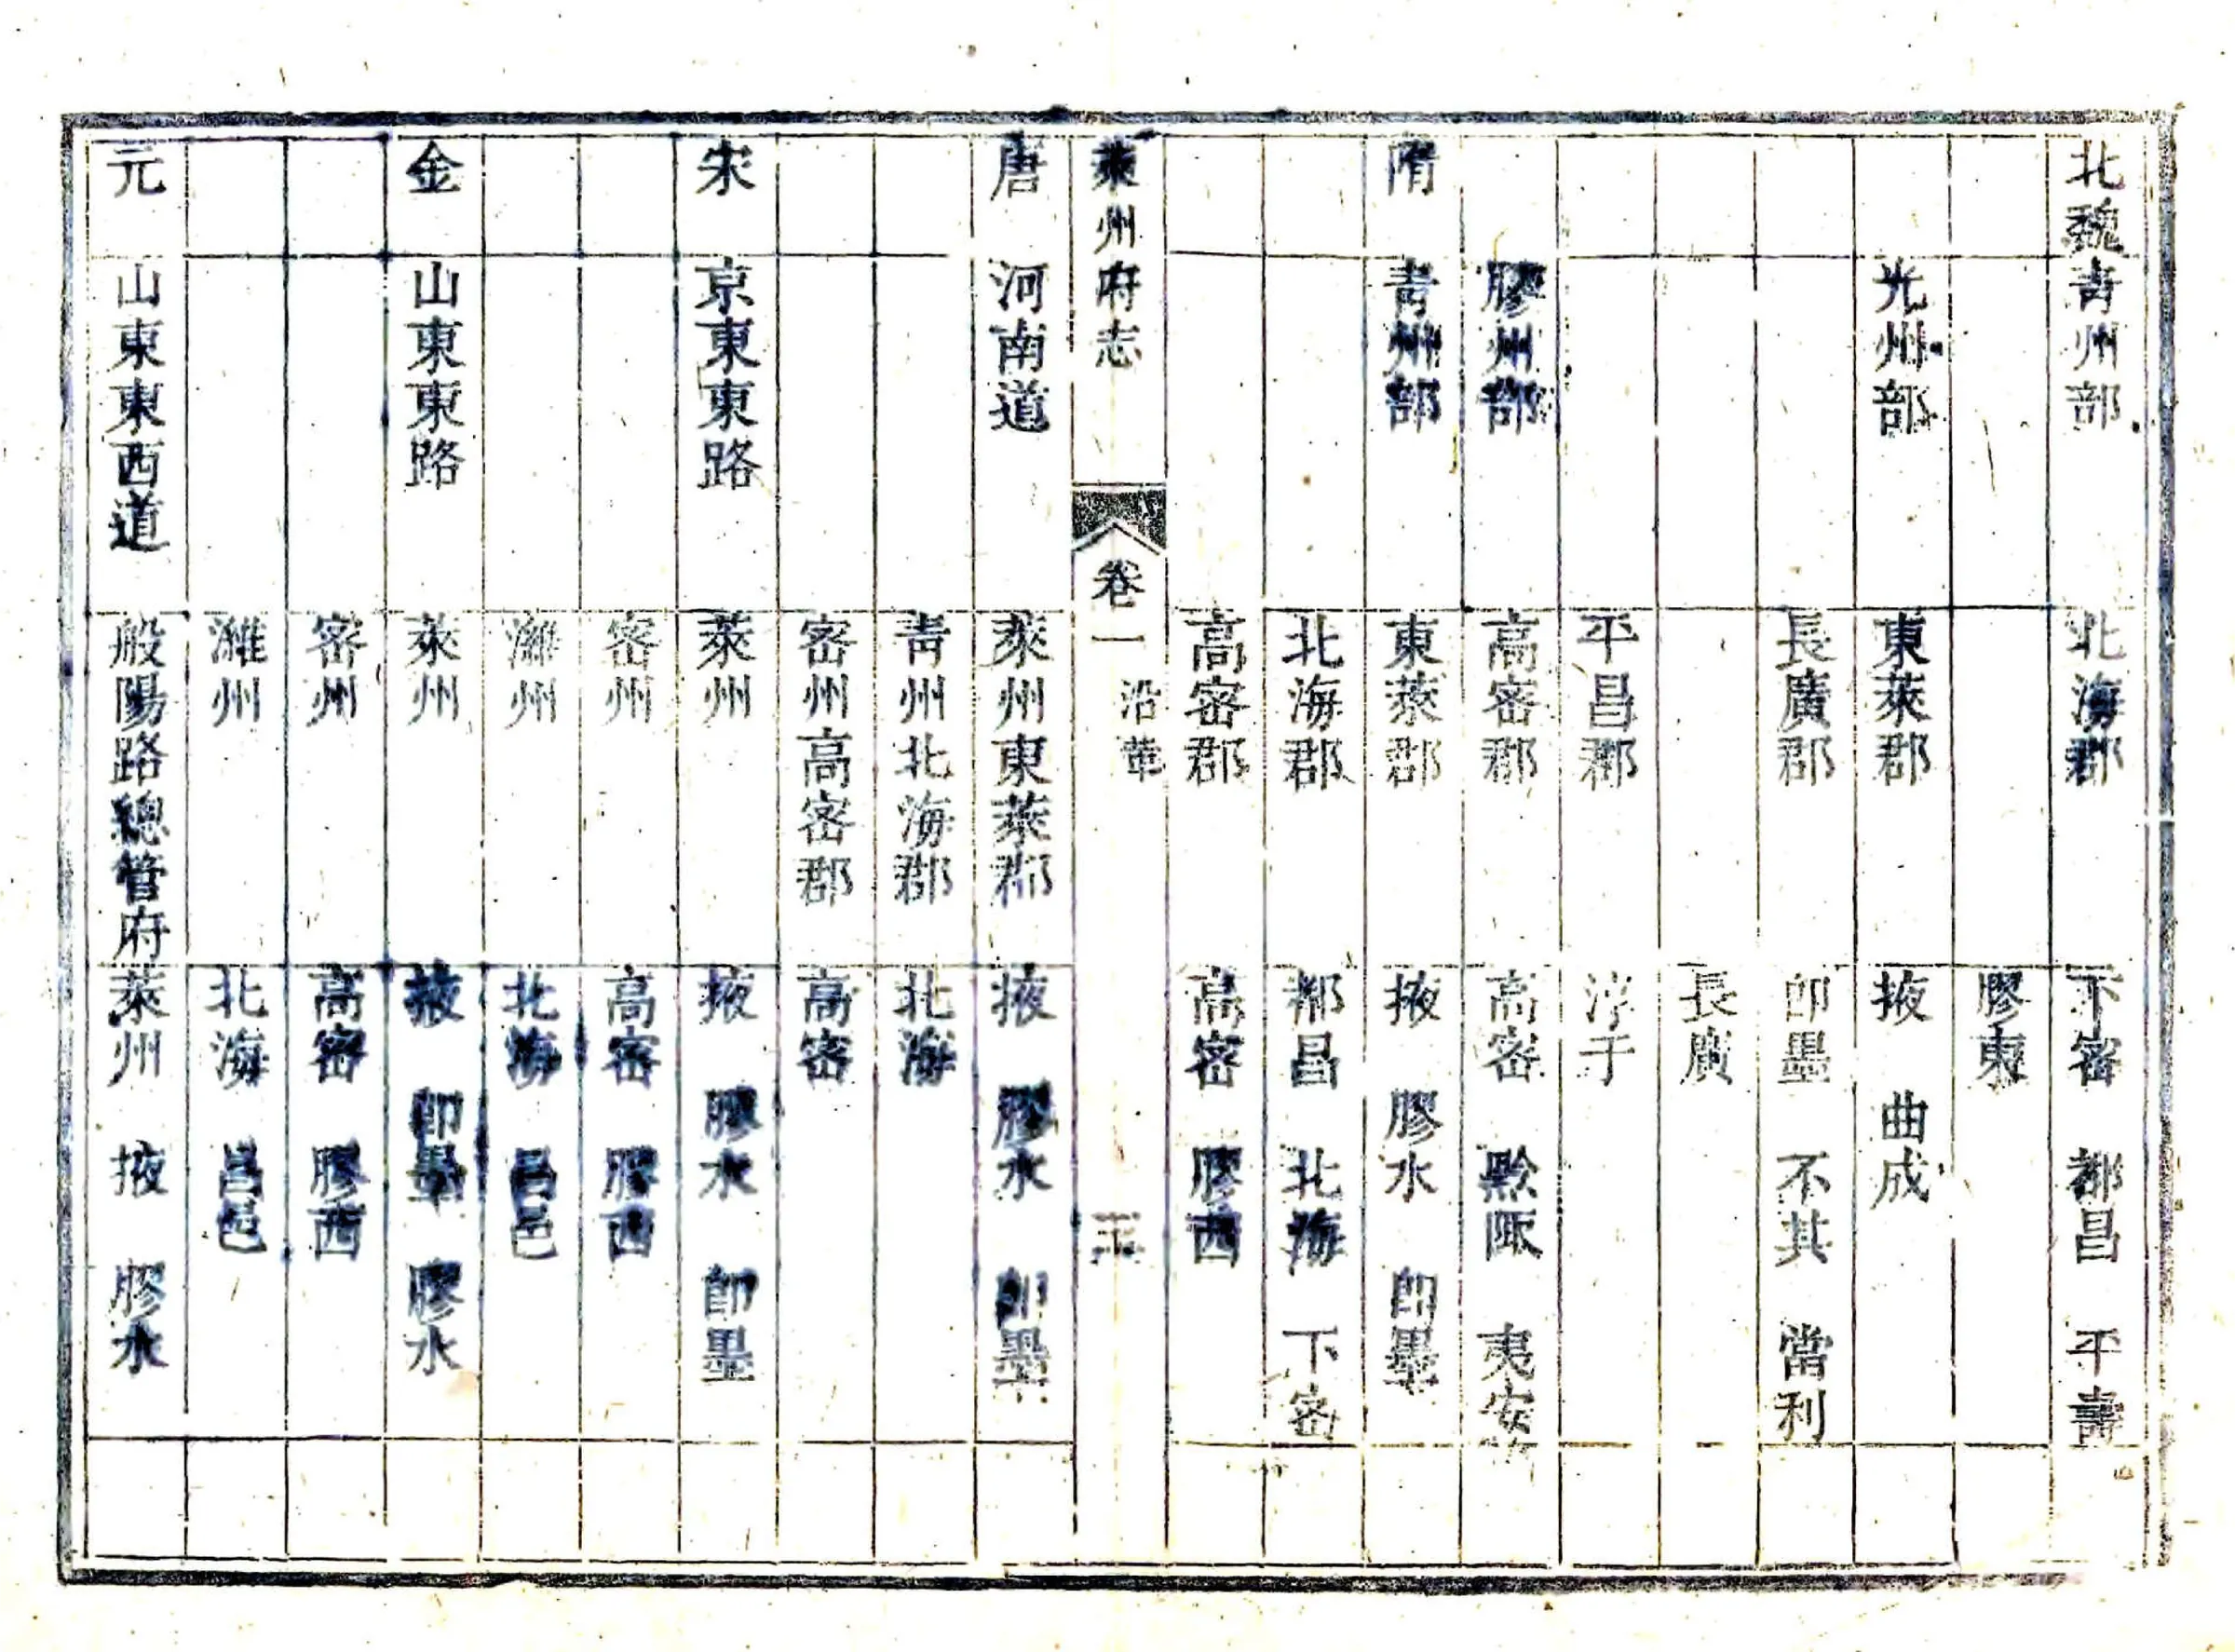 北魏 青州部 北海郡 下密 都昌 平壽
膠東
光州部 東萊郡 掖 曲成
長廣郡 卽墨 不其 當利
長廣
平昌郡 淳于
膠州部 高密郡 高密 黔陬 夷安
隋 青州部 東萊郡 掖 膠水 卽墨
北海郡 都昌 北海 下密
高密郡 高密 膠西
萊州府志 卷一 沿革
唐 河南道 萊州東萊郡 掖 膠水 卽墨
青州北海郡 北海
密州高密郡 高密
宋 京東東路 萊州 掖 膠水 卽墨
密州 高密 膠西
濰州 北海 昌邑
金 山東東路 萊州 掖 卽墨 膠水
密州 高密 膠西
濰州 北海 昌邑
元 山東東西道 般陽路總管府 萊州 掖 膠水